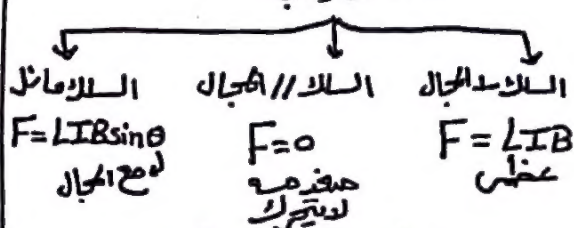 السلك ⊥ المجال
F = LIB
عظمى
السلك // المجال
F=0
منعدمه
لا يتحرك
السلك مائل
F=LIBsinθ
مع المجال